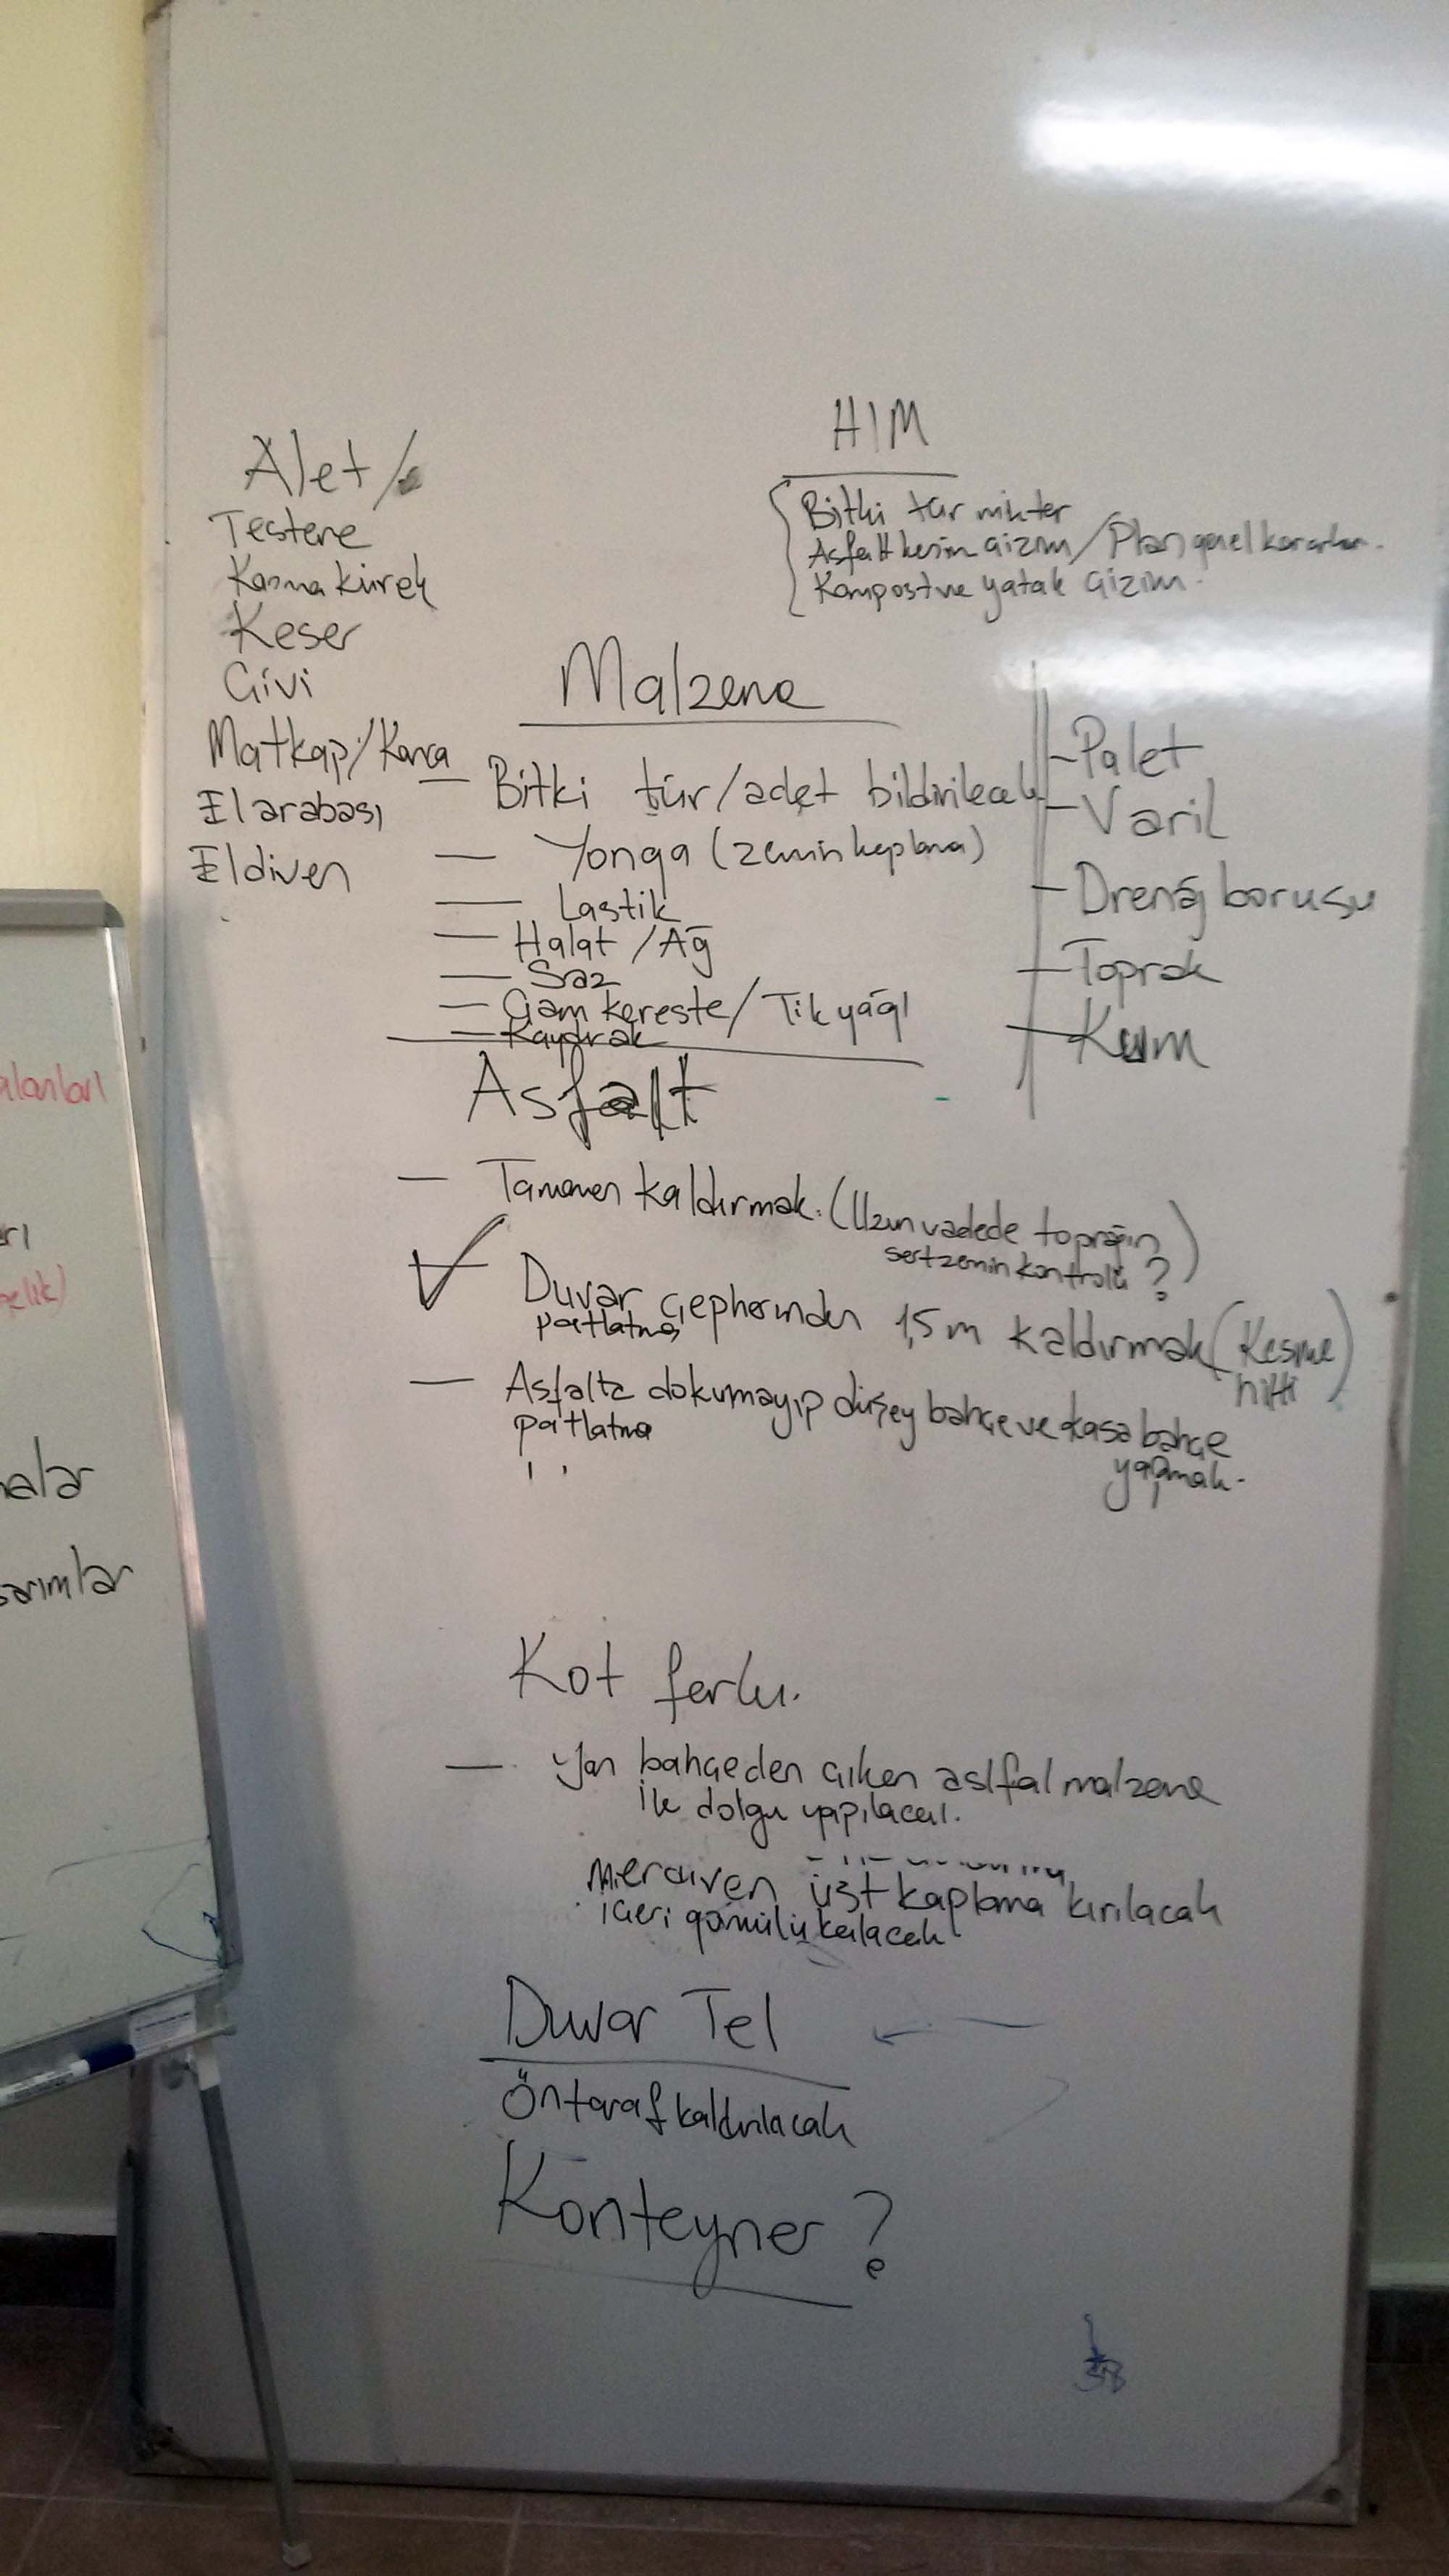 HIM
Bitki tür mikter
Asfalt kesim çizim/Plan genel kararları.
Kompost ve yatak çizim.
Alet/
Testene
Kazma kürek
Keser
Çivi
Matkap/Kanca
El arabası
Eldiven
Malzeme
— Bitki tür/adet bildirilecek
— Yonga (zemin kaplama)
— Lastik
— Halat/Ağ
— Saz
— Çam kereste/Tik yağı
— Kaydırak
- Palet
- Varil
- Drenaj borusu
- Toprak
- Kum
Asfalt
— Tamamen kaldırmak. (Uzun vadede toprağın
sert zemin kontrolü?)
✓ Duvar çepherinden 1,5 m kaldırmak (Kesme
patlatma
hilti)
— Asfalta dokumayıp düşey bahçe ve kasa bahçe
patlatma
yapmak.
Kot farkı.
— Yan bahçeden çıkan aslfal malzeme
ile dolgu yapılacak.
Merdiven üst kaplama kırılacak
içeri gömülü kalacak
Duvar Tel
Ön taraf kaldırılacak
Konteyner?
alanları
arı
elik)
alar
sarımlar